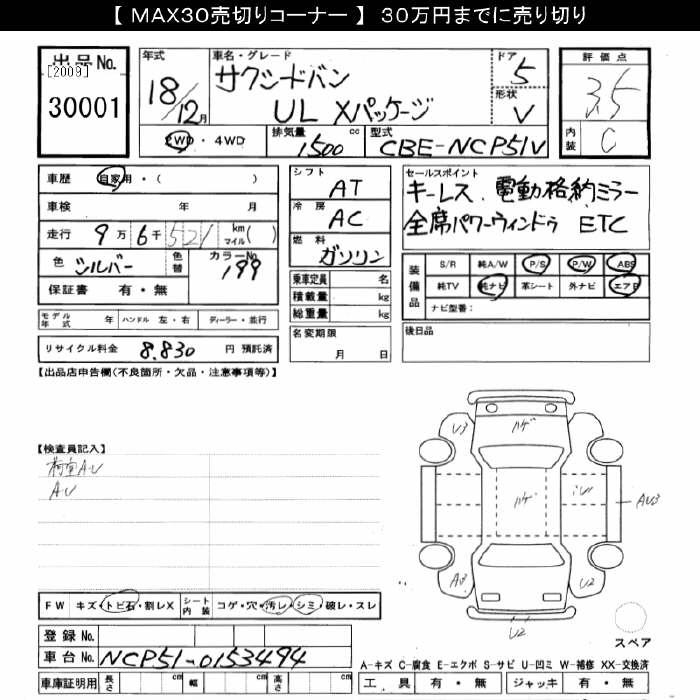 【 MAX30売切りコーナー 】 30万円までに売り切り
出品No.
[2009]
30001
年式
18/12月
車名・グレード
サクシードバン
UL Xパッケージ
ドア
5
形状
V
評価点
3.5
内装
C
2WD・4WD
排気量
1500cc
型式
CBE-NCP51V
車歴 自家用・( )
車検 年 月
走行 9万6千521 km マイル( )
色 シルバー 色替 カラーNo. 199
保証書 有・無
モデル年式 年 ハンドル 左・右 ディーラー・並行
リサイクル料金 8.830 円 預託済
シフト
AT
冷房
AC
燃料
ガソリン
乗車定員 名
積載量 kg
総重量 kg
名変期限
月 日
セールスポイント
キーレス 電動格納ミラー
全席パワーウィンドゥ ETC
装備品
S/R 純A/W P/S P/W ABS
純TV 純ナビ 革シート 外ナビ エアB
ナビ型番:
後日品
【出品店申告欄(不良箇所・欠品・注意事項等)】
【検査員記入】
荷室AU
AU
U3
ハゲ
ハゲ
AU3
U2
U2
FW キズ・トビ石・割レX シート内装 コゲ・穴・汚レ・シミ・破レ・スレ
登録No.
車台No. NCP51-0153494
車庫証明用 長さ cm 幅 cm 高さ cm
スペア
A-キズ C-腐食 E-エクボ S-サビ U-凹ミ W-補修 XX-交換済
工具 有・無 ジャッキ 有・無